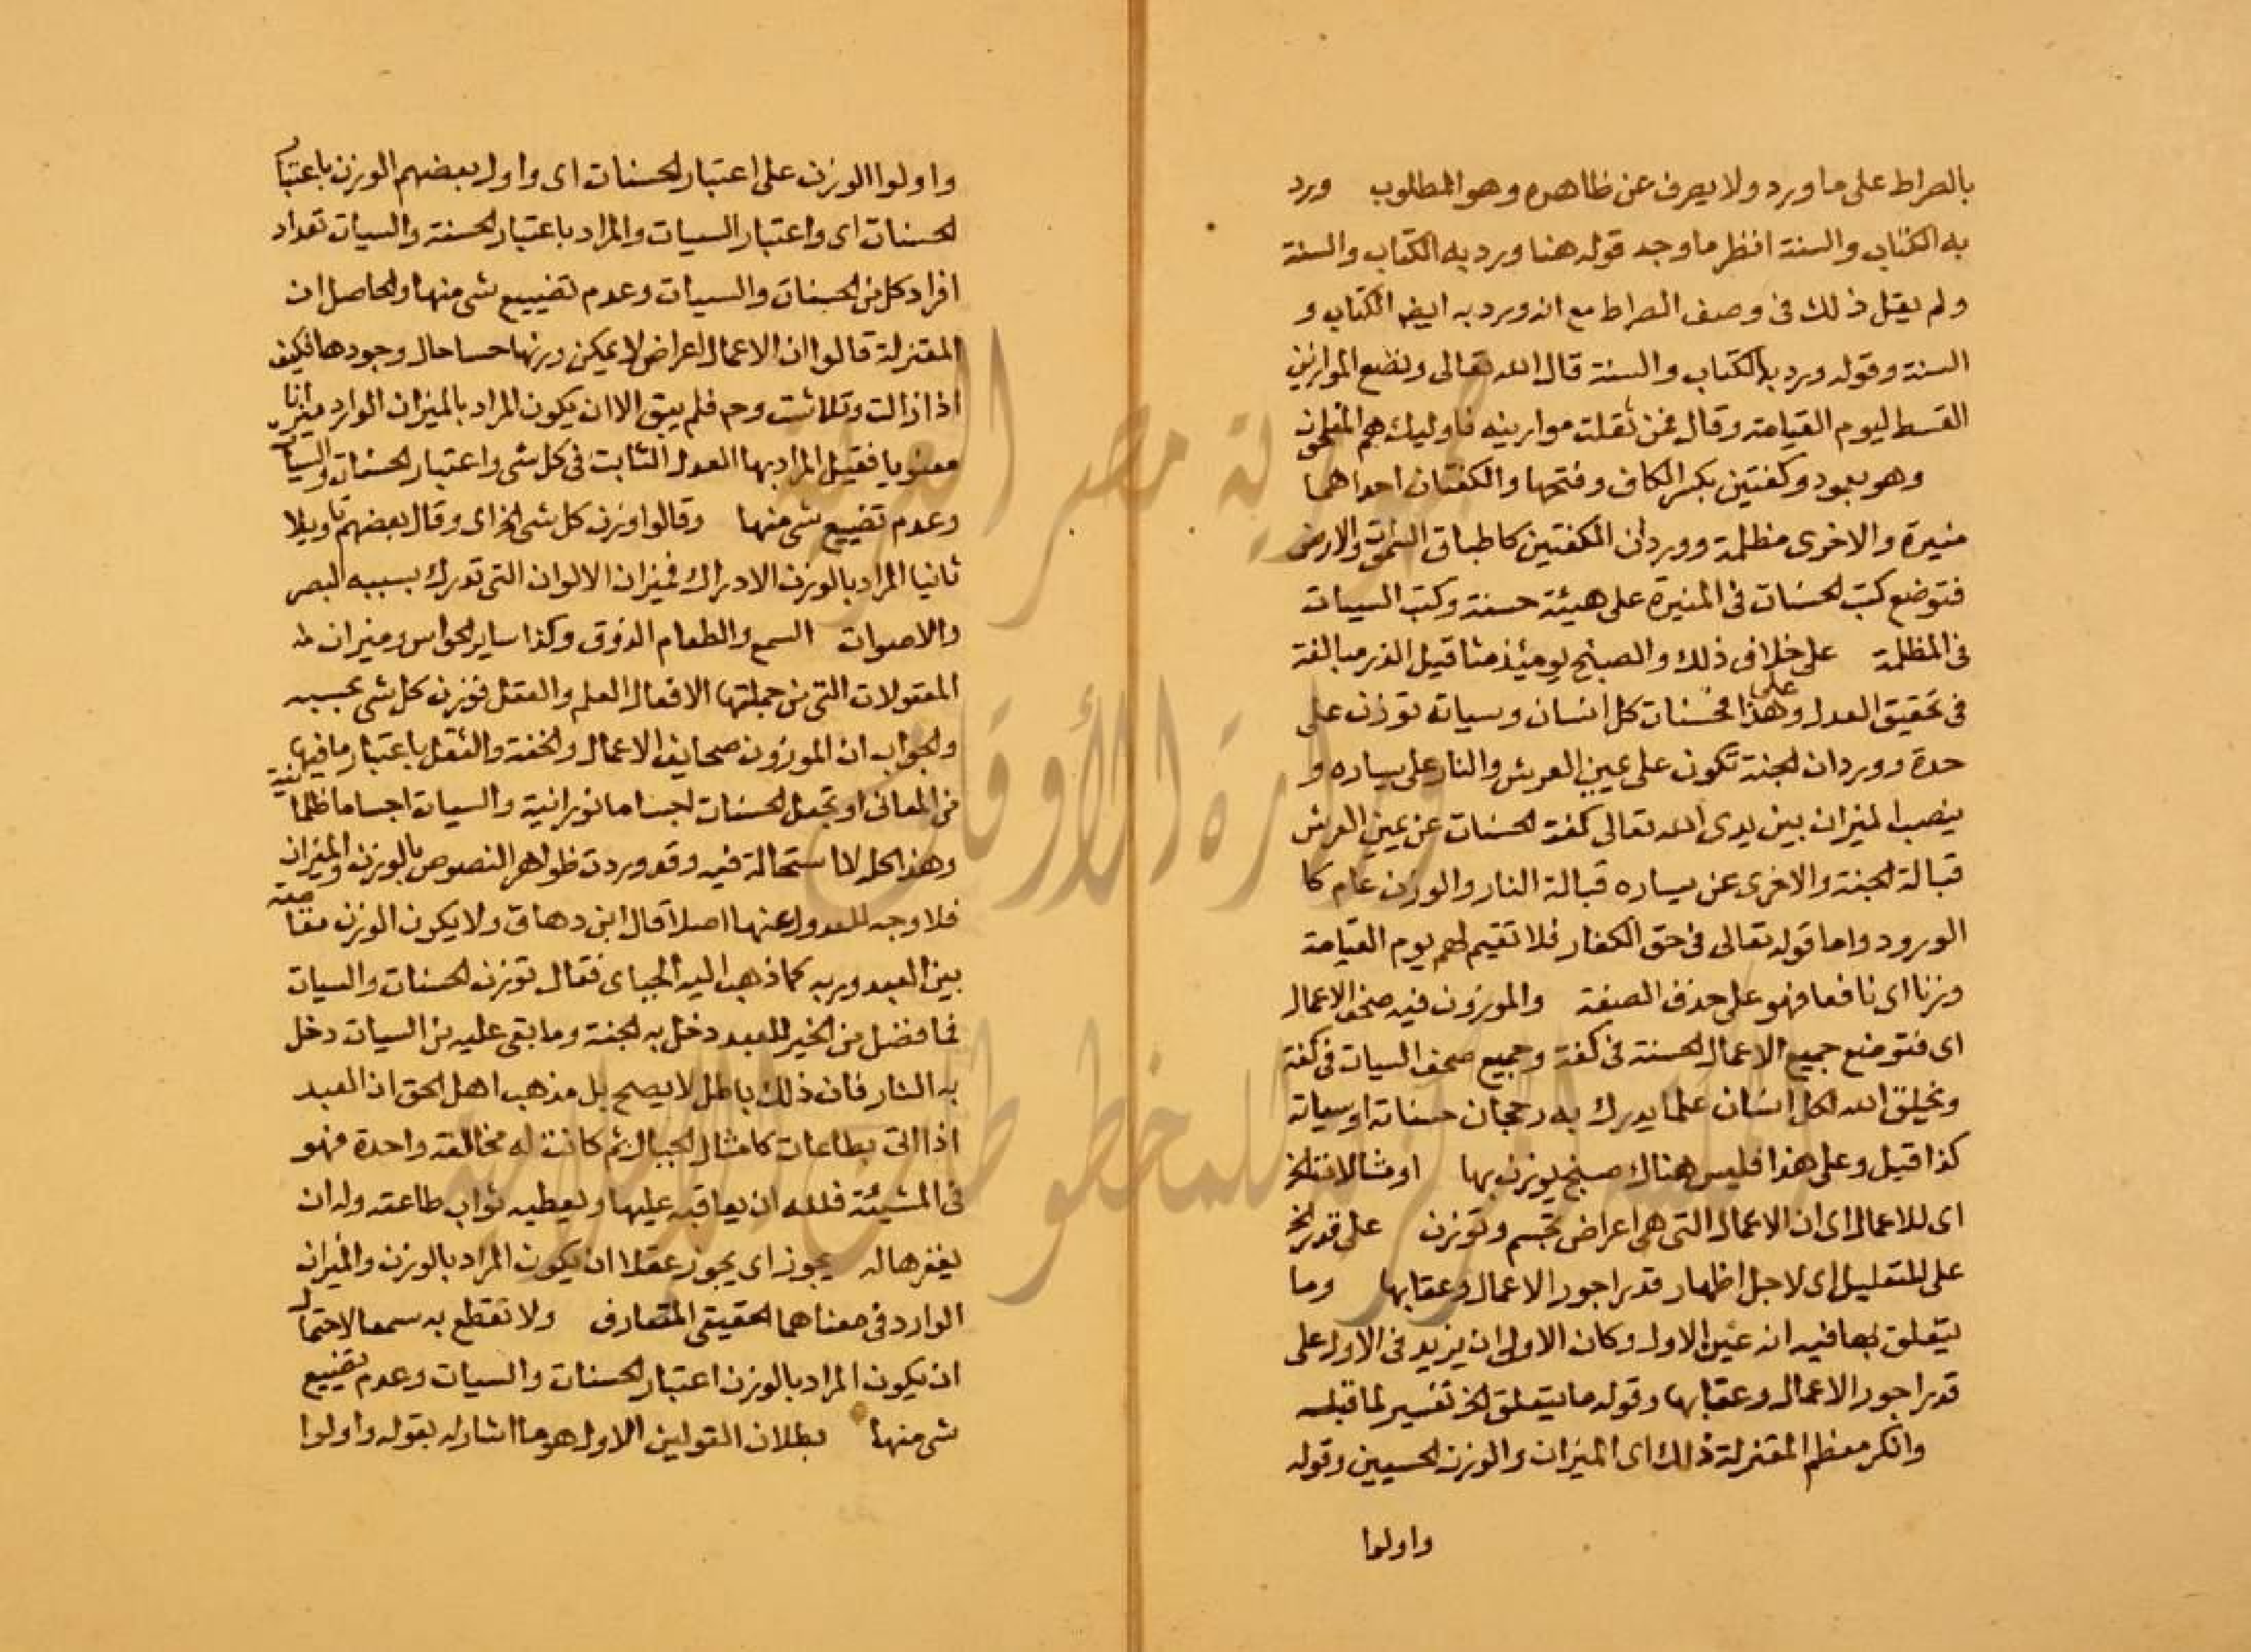 بالصراط على ما ورد ولا يصرف عن ظاهره وهو المطلوب ورد
به الكتاب والسنة انظر ما وجه قوله هنا ورد به الكتاب والسنة
ولم يقل ذلك فى وصف الصراط مع انه ورد به ايضا الكتاب و
السنة وقوله ورد به الكتاب والسنة قال الله تعالى ونضع الموازين
القسط ليوم القيامة وقال فمن ثقلت موازينه فاوليك هم المفلحون
وهو بعود وكفتين بكسر الكاف وفتحها والكفتان احداهما
منيرة والاخرى مظلمة وورد ان الكفتين كاطباق السموات والارض
فتوضع كتب الحسنات فى المنيرة على هيئة حسنة وكتب السييات
فى المظلمة على خلاف ذلك والصبنج يومئذ مثاقيل الذر مبالغة
فى تحقيق العدل وعلى هذا فحسنات كل انسان وسياته توزن على
حدة وورد ان الجنة تكون على يمين العرش والنار على يساره و
ينصب الميزان بين يدى الله تعالى كفة الحسنات عن يمين العرش
قبالة الجنة والاخرى عن يساره قبالة النار والوزن عام كا
الورود واما قوله تعالى فى حق الكفار فلا تقيم لهم يوم القيامة
وزنا اى نافعا فهو على حذف الصفة والموزون فيه صحف الاعمال
اى فتوضع جميع الاعمال الحسنة فى كفة وجميع صحف السيات فى كفة
ويخلق الله لكل انسان علما يدرك به رجحان حسناته او سياته
كذا قيل وعلى هذا فليس هناك صبنج يوزن بها او مثالاتنا الخ
اى للاعمال اى ان الاعمال التى هى اعراض تجسم وتوزن على قدر الخ
على للتعليل اى لاجل اظهار قدر اجور الاعمال وعقابها وما
يتعلق بها فيه انه عين الاول وكان الاولى ان يزيد فى الاول على
قدر اجور الاعمال وعقابها وقوله ما يتعلق الخ تفسير لما قبله
وانكر معظم المعتزلة ذلك اى الميزان والوزن الحسيين وقوله
واولوا
واولوا الوزن على اعتبار الحسنات اى واول بعضهم الوزن باعتبار
الحسنات اى واعتبار السييات والمراد باعتبار الحسنة والسيات تعداد
افراد كل من الحسنات والسيات وعدم تضييع شى منها والحاصل ان
المعتزلة قالوا ان الاعمال اعراض لا يمكن وزنها حسا حال وجودها فكيف
اذا زالت وتلاشت وح فلم يبق الا ان يكون المراد بالميزان الوارد ميزانا
معنويا فقيل المراد بها العدل الثابت فى كل شى واعتبار الحسنات والسيات
وعدم تضييع شى منها وقالوا وزن كل شى الخ اى وقال بعضهم تاويلا
ثانيا المراد بالوزن الادراك فميزان الالوان التى تدرك بسببه البصر
والاصوات السمع والطعام الذوق وكذا ساير الحواس وميزان
المعقولات التى من جملتها الافعال العلم والعقل فوزن كل شى بحسبه
والجواب ان الموزون صحايف الاعمال والخفة والثقل باعتبار ما فيها
من المعانى او تجعل الحسنات اجساما نورانية والسيات اجساما ظلمانية
وهذا كله لا استحالة فيه وقد وردت ظواهر النصوص بالوزن والميزان
فلا وجه للعدول عنها اصلا قال ابن دهاق ولا يكون الوزن مقاصة
بين العبد وربه كما ذهب اليه الجباى فقال توزن الحسنات والسيات
فما فضل من الخير للعبد دخل به الجنة وما بقى عليه من السيات دخل
به النار فان ذلك باطل لا يصح بل مذهب اهل الحق ان العبد
اذا اتى بطاعات كامثال الجبال ثم كانت له مخالفة واحدة فهو
فى المشيئة فلله ان يعاقبه عليها ويعطيه ثواب طاعته وله ان
يغفرها له يجوز اى يجوز عقلا ان يكون المراد بالوزن والميزان
الوارد فى معناهما الحقيقى المتعارف ولا تقطع به سمعا لاحتمال
ان يكون المراد بالوزن اعتبار الحسنات والسيات وعدم تضييع
شى منها بطلان القولين الاول هو ما اشار له بقوله واولوا
جمهورية مصر العربية
وزارة الأوقاف